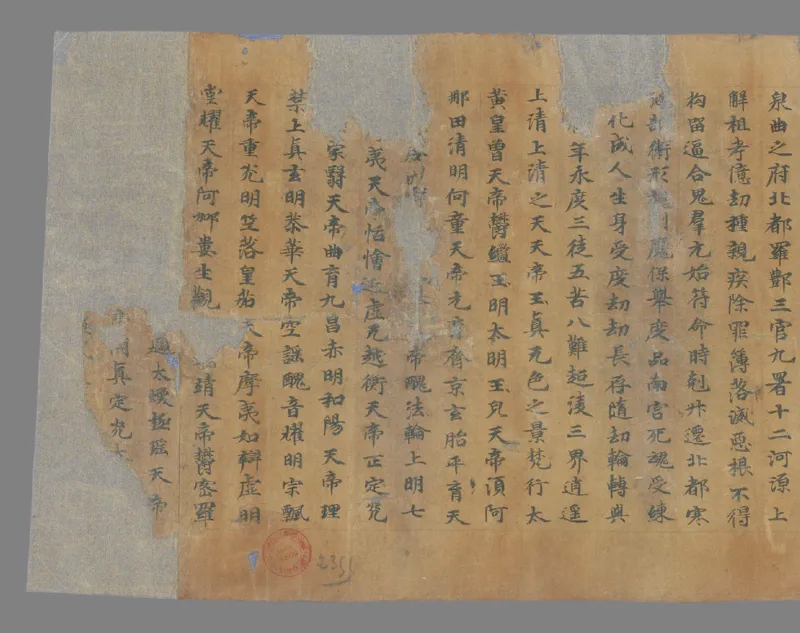 泉曲之府北都羅酆三官九署十二河源上
解祖考億劫種親疾除罪簿落滅惡根不得
拘留逼合鬼羣元始符命時剋升遷北都寒
部衛形制魔保舉度品南宮死魂受練
化成人生身受度劫劫長存隨劫輪轉與
年永度三徒五苦八難超淩三界逍遥
上清上清之天天帝玉真无色之景梵行太
黃皇曾天帝鬱繿玉明太明玉兒天帝須阿
那田清明何童天帝元育齊京玄胎平育天
帝醜法輪上明七
夷天帝恬憯延虛无越衡天帝正定光
家翳天帝曲育九昌赤明和陽天帝理
禁上真玄明恭華天帝空謠醜音曜明宗飄
天帝重光明竺落皇笳天帝摩夷妙辯虛明
堂耀天帝阿那婁生觀 靖天帝鬱密羅
過太㬉極瑶天帝
真定光
2355